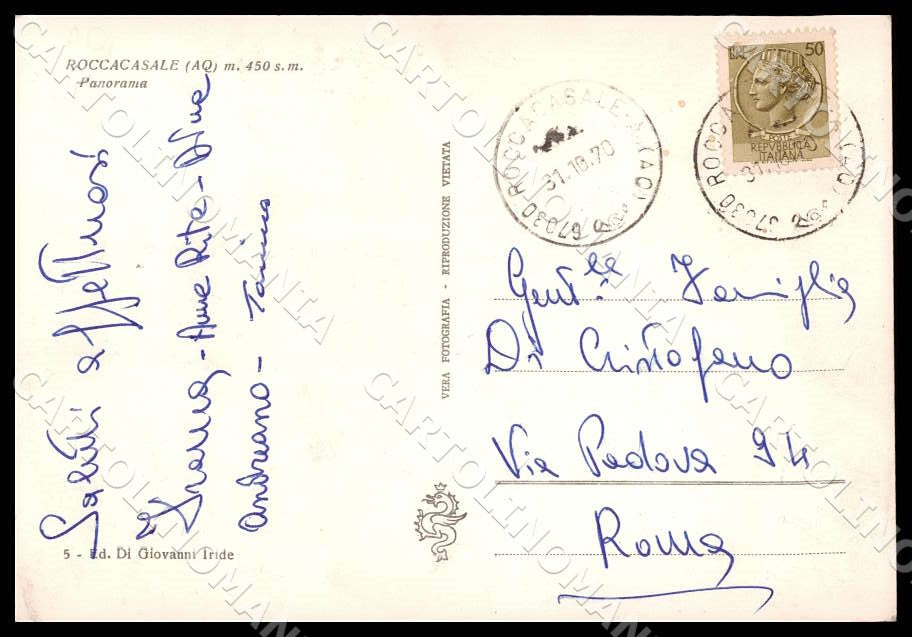 ROCCACASALE (AQ) m. 450 s.m.
Panorama
Saluti affettuosi
Anna Rita -
Andreano - Tonino
5 - Ed. Di Giovanni Iride
VERA FOTOGRAFIA - RIPRODUZIONE VIETATA
67030 ROCCACASALE (AQ)
31.10.70
50
POSTE
REPUBBLICA
ITALIANA
67030 ROCC (AQ)
31.
Gent.lle Famiglia
Di Cristofano
Via Padova 94
Roma
CARTOLINOMANIA